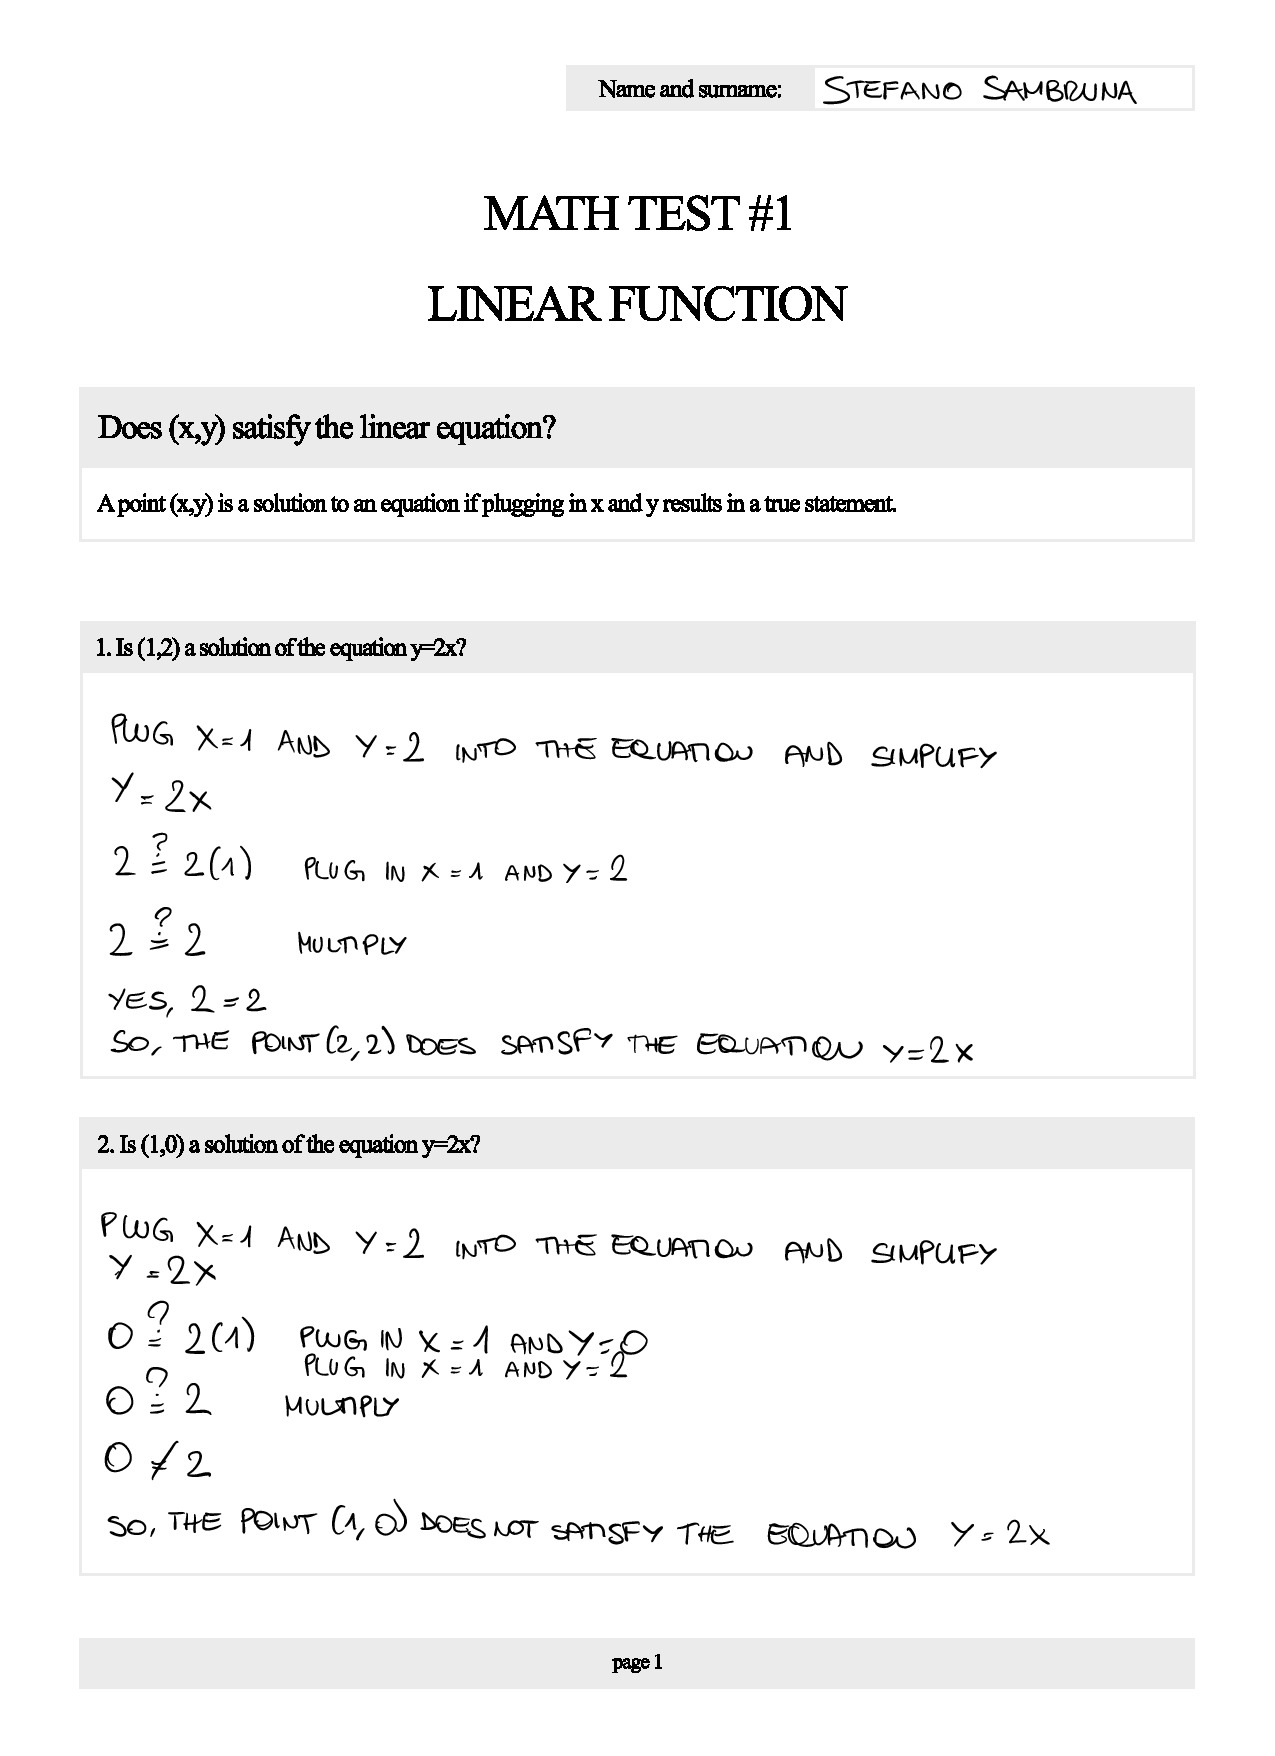 Name and surname: STEFANO SAMBRUNA
MATH TEST #1
LINEAR FUNCTION
Does (x,y) satisfy the linear equation?
A point (x,y) is a solution to an equation if plugging in x and y results in a true statement.
1. Is (1,2) a solution of the equation y=2x?
PLUG X=1 AND Y=2 INTO THE EQUATION AND SIMPLIFY
Y=2X
2 ≟ 2(1) PLUG IN X=1 AND Y=2
2 ≟ 2 MULTIPLY
YES, 2=2
SO, THE POINT (2,2) DOES SATISFY THE EQUATION Y=2X
2. Is (1,0) a solution of the equation y=2x?
PLUG X=1 AND Y=2 INTO THE EQUATION AND SIMPLIFY
Y=2X
0 ≟ 2(1) PLUG IN X=1 AND Y=0
PLUG IN X=1 AND Y=2
0 ≟ 2 MULTIPLY
0 ≠ 2
SO, THE POINT (1,0) DOES NOT SATISFY THE EQUATION Y=2X
page 1